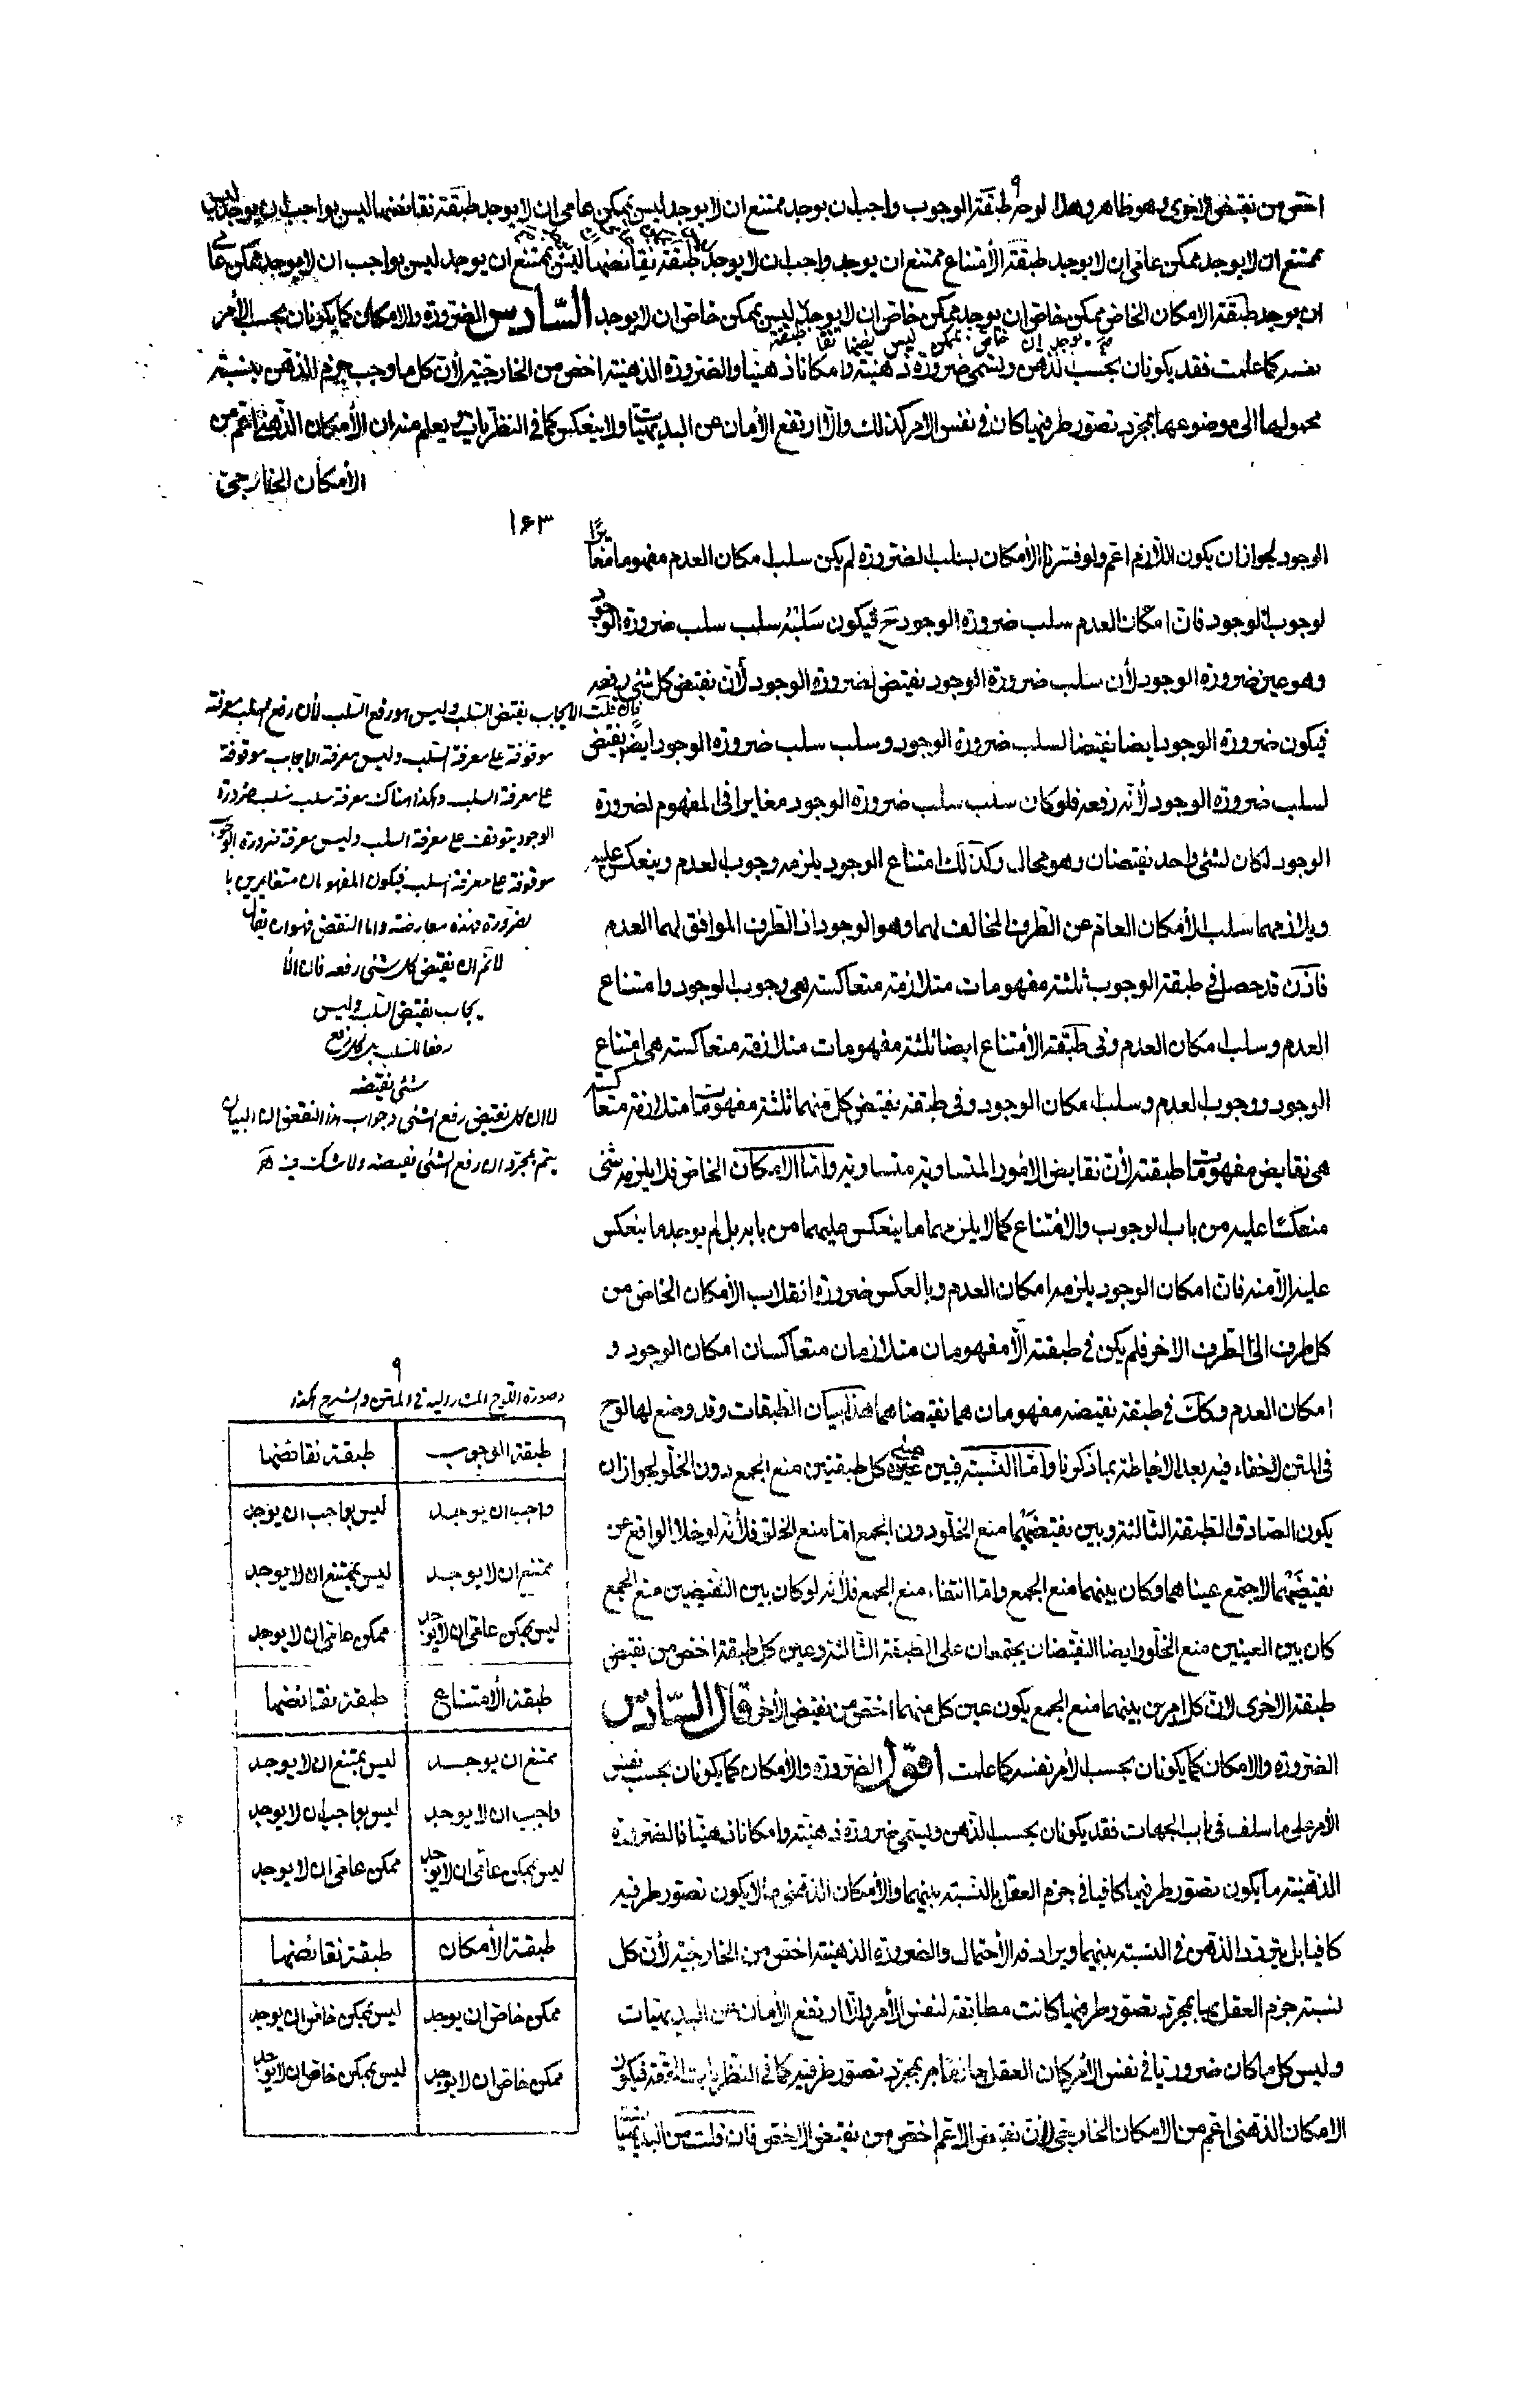 اخص من نقيض الاخرى وهو ظاهر وهذا لوحه طبقة الوجوب واجب ان يوجد ممتنع ان لا يوجد ليس بممكن عامى ان لا يوجد طبقة نقائضها ليس بواجب ان يوجد ليس
بممتنع ان لا يوجد ممكن عامى ان لا يوجد طبقة الأمتناع ممتنع ان يوجد واجب ان لا يوجد طبقة نقائضها ليس بممتنع ان يوجد ليس بواجب ان لا يوجد ممكن عامى
ان يوجد طبقة الامكان الخاص ممكن خاص ان يوجد ممكن خاص ان لا يوجد ليس بممكن خاص ان لا يوجد السّادس الضرورة والامكان كما يكونان بحسب الأمر
طبقة نقايضها ليس بممكن خاص ان يوجد
نفسه كما علمت فقد يكونان بحسب الذهن ويسمى ضرورة ذهنية وامكانا ذهنيا والضرورة الذهنية اخص من الخارجية لأن كل ما وجب جزم الذهن بنسبة
محمولها الى موضوعها بمجرد تصور طرفيها كان فى نفس الأمر كذلك والّا ارتفع الأمان عن البديهيات ولا ينعكس كما فى النظريات ويعلم منه ان الأمكان الذهنى اعم من
الأمكان الخارجى
١٦٣
الوجود لجواز ان يكون اللازم اعم ولو فسرنا الأمكان بسلب الضرورة لم يكن سلب امكان العدم مفهوما مغايرًا
لوجوب الوجود فان امكان العدم سلب ضرورة الوجود ح فيكون سلبه سلب سلب ضرورة الوجود
وهو عين ضرورة الوجود لأن سلب ضرورة الوجود نقيض لضرورة الوجود لأن نقيض كل شئ رفعه
فيكون ضرورة الوجود ايضا نقيضا لسلب ضرورة الوجود وسلب سلب ضرورة الوجود ايضا نقيض
لسلب ضرورة الوجود لأنه رفعه فلو كان سلب سلب ضرورة الوجود مغايرا فى المفهوم لضرورة
الوجود لكان لشئ واحد نقيضان وهو محال وكذلك امتناع الوجود يلزمه وجوب العدم وينعكس عليه
ويلازمهما سلب الأمكان العام عن الطرف المخالف لهما وهو الوجود اذ الطرف الموافق لهما العدم
فاذن قد حصل فى طبقة الوجوب ثلثة مفهومات متلازمة متعاكسة هى وجوب الوجود وامتناع
العدم وسلب امكان العدم وفى طبقة الأمتناع ايضا ثلثة مفهومات متلازمة متعاكسة هى امتناع
الوجود ووجوب العدم وسلب امكان الوجود وفى طبقة نقيض كل منهما ثلثة مفهومات متلازمة متعاكسة
هى نقايض مفهومات طبقته لأن نقايض الامور المتساوية متساوية وامّا الامكان الخاص فلا يلزمه شئ
منعكسا عليه من باب الوجوب والامتناع كما لا يلزمهما ما ينعكس عليهما من بابه بل لم يوجد ما ينعكس
عليه الّا منه فان امكان الوجود يلزمه امكان العدم وبالعكس ضرورة انقلاب الأمكان الخاص من
كل طرف الى الطرف الاخر فلم يكن فى طبقته الّا مفهومان متلازمان متعاكسان امكان الوجود و
امكان العدم وكك فى طبقة نقيضه مفهومان هما نقيضاهما هذا بيان الطبقات وقد وضع لها لوح
فى المتن لا خفاء فيه بعد الأحاطة بما ذكرنا وامّا النسبة فبين عينى كل طبقتين منع الجمع دون الخلو لجواز ان
يكون الصادق الطبقة الثالثة وبين نقيضيهما منع الخلو دون الجمع امّا منع الخلو فلأنه لو خلا الواقع عن
نقيضيهما لاجتمع عيناهما وكان بينهما منع الجمع وامّا انتفاء منع الجمع فلأنه لو كان بين النقيضين منع الجمع
كان بين العينين منع الخلو وايضا النقيضان يجتمعان على الطبقة الثالثة وعين كل طبقة اخص من نقيض
طبقة الاخرى لان كل امرين بينهما منع الجمع يكون عين كل منهما اخص من نقيض الأخر قال السّادس
الضرورة والامكان كما يكونان بحسب الأمر نفسه كما علمت اقول الضرورة والأمكان كما يكونان بحسب نفس
الأمر على ما سلف فى باب الجهات فقد يكونان بحسب الذهن ويسمى ضرورة ذهنية وامكانا ذهنيّا فالضرورة
الذهنية ما يكون تصور طرفيها كافيا فى جزم العقل بالنسبة بينهما والأمكان الذهنى ما لا يكون تصور طرفيه
كافيا بل يتردد الذهن فى النسبة بينهما ويرادفه الأحتمال والضرورة الذهنية اخص من الخارجية لأن كل
نسبة جزم العقل بها بمجرد تصور طرفيها كانت مطابقة لنفس الأمر والّا ارتفع الأمان عن البديهيات
وليس كل ما كان ضروريا فى نفس الأمر كان العقل جازما به بمجرد تصور طرفيه كما فى النظريات الحقة فيكون
الامكان الذهنى اعم من الامكان الخارجى لأن نقيض الاعم اخص من نقيض الاخص فان قلت من البديهيات
فان قلت الايجاب نقيض السلب وليس هو رفع السلب لأن رفع السلب معرفته
موقوفة على معرفة السلب وليس معرفة الايجاب موقوفة
على معرفة السلب وهكذا هناك معرفة سلب سلب ضرورة
الوجود يتوقف على معرفة السلب وليس معرفة ضرورة الوجود
موقوفة على معرفة السلب فيكون المفهومان متغايرين با
لضرورة فهذه معارضة واما النقض فهو ان يقال
لا نم ان نقيض كل شئ رفعه فان الأ
يجاب نقيض السلب وليس
رفعا للسلب بل كل رفع
شئ نقيضه
لا ان كل نقيض رفع الشئ وجواب هذا النقض ان البيان
يتم بمجرد ان رفع الشئ نقيضه ولا شك فيه
وصورة اللوح المشار اليه فى المتن والشرح هكذا
طبقة الوجوب | طبقة نقائضها
واجب ان يوجد | ليس بواجب ان يوجد
ممتنع ان لا يوجد | ليس بممتنع ان لا يوجد
ليس بممكن عامى ان لا يوجد | ممكن عامى ان لا يوجد
طبقة الأمتناع | طبقة نقائضها
ممتنع ان يوجد | ليس بممتنع ان لا يوجد
واجب ان لا يوجد | ليس بواجب ان لا يوجد
ليس بممكن عامى ان لا يوجد | ممكن عامى ان لا يوجد
طبقة الأمكان | طبقة نقائضها
ممكن خاص ان يوجد | ليس بممكن خاص ان يوجد
ممكن خاص ان لا يوجد | ليس بممكن خاص ان لا يوجد